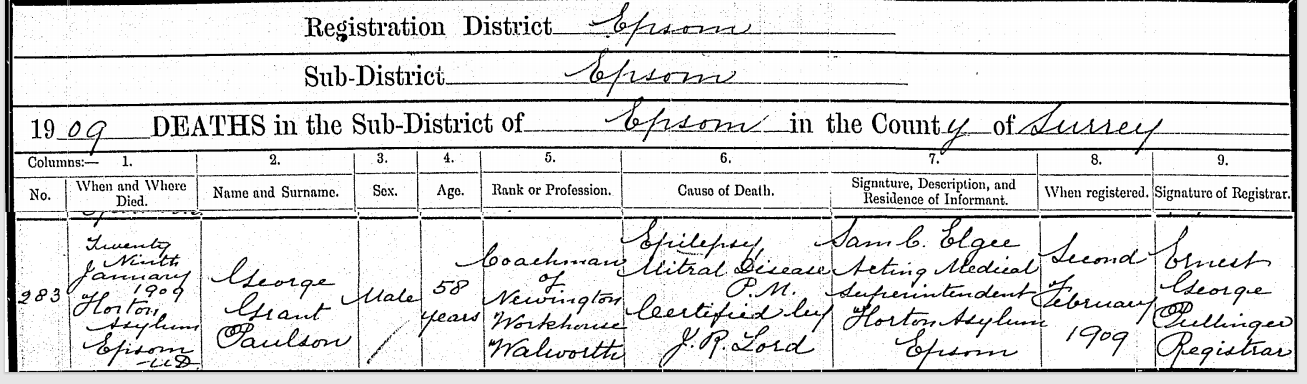 Registration District Epsom
Sub-District Epsom
1909 DEATHS in the Sub-District of Epsom in the County of Surrey
Columns:— 1. 2. 3. 4. 5. 6. 7. 8. 9.
No. When and Where Died. Name and Surname. Sex. Age. Rank or Profession. Cause of Death. Signature, Description, and Residence of Informant. When registered. Signature of Registrar.
283
Twenty
Ninth
January
1909
Horton
Asylum
Epsom
U.D.
George
Grant
Paulson
Male
58
years
Coachman
of
Newington
Workhouse
Walworth
Epilepsy
Mitral Disease
P.M.
Certified by
J. R. Lord
Sam C. Elgee
Acting Medical
Superintendent
Horton Asylum
Epsom
Second
February
1909
Ernest
George
Pullinger
Registrar